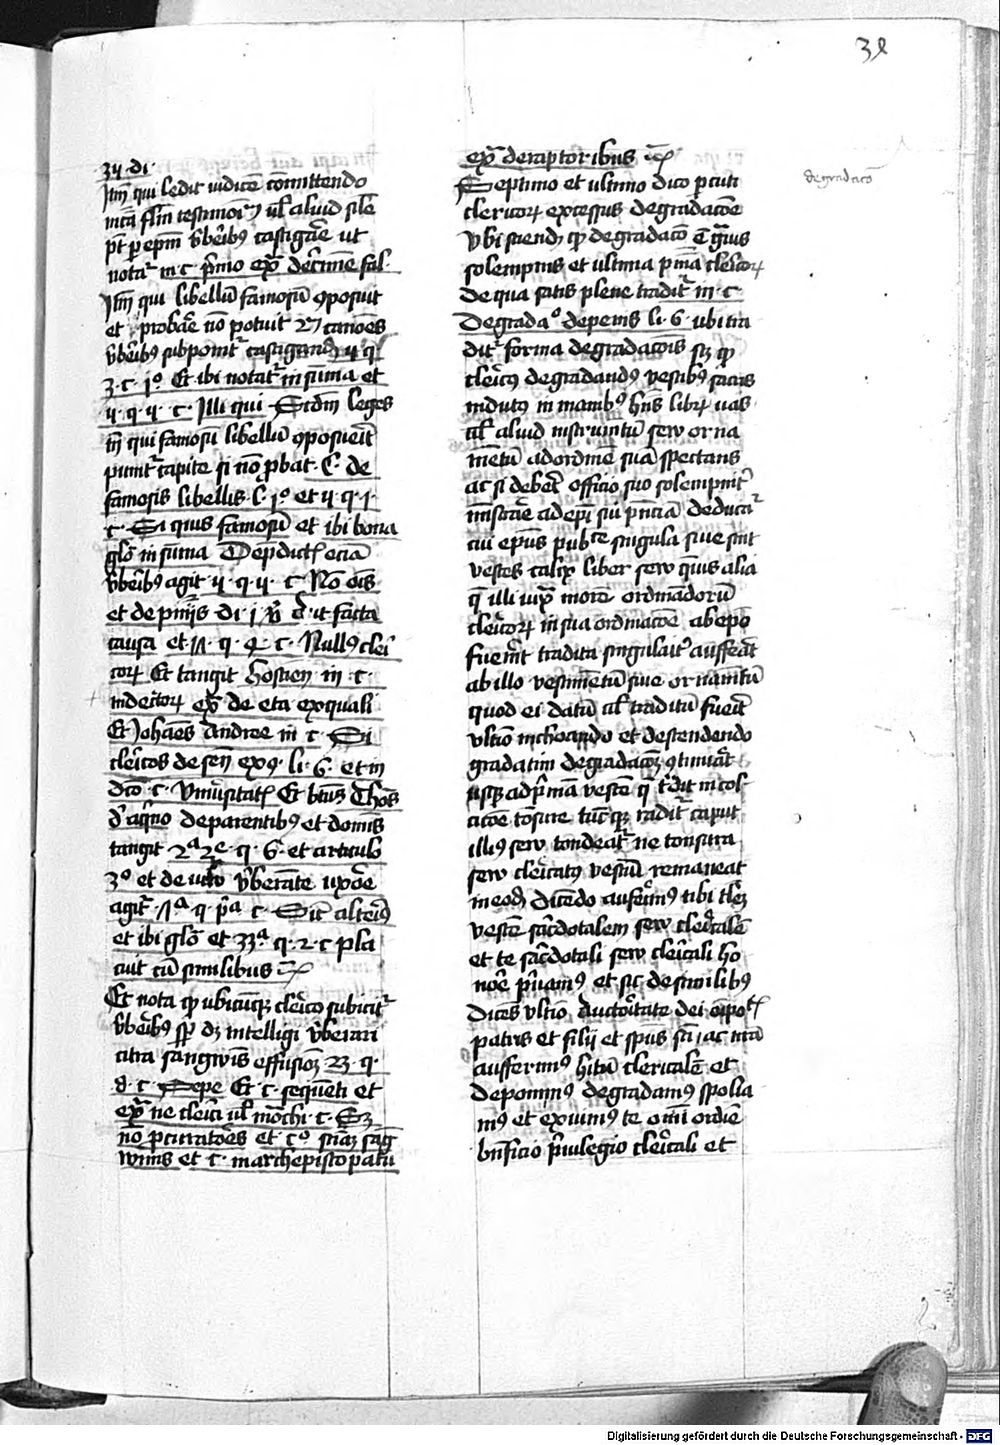 38
degradacō
3ȷ di
Itm̄ qui ledit iudicē cōmittendo
incā flm̄ testimoīȝ ul̄ aliud sile
pt̄ per epm̄ v̄beribꝰ castigare ut
notat̄ in c p̄mo ex̄ de crimine fal.
Itm̄ qui libellū famosū ꝯposuit
et probare nō potuit scd̄m canōes
v̄beribꝰ subponit̄ castigand
3 c 1º Et ibi notat̄ in sūma et
ij q ij c Illi qui Scdm leges
tn̄ qui famosū libellū ꝯposuerit
punit̄ capite si nō ꝓbat C de
famosis libellis l 1º et ij q 1
c Si quis famosū et ibi bona
glō in sūma
v̄beribꝰ agit ij q ij c Nō oīs
et de pniīs di 1 ut facta
causa et q c Nullꝰ cleri
corꝝ Et tangit Hostien in c
indeꝯtorꝝ ex̄ de eta et quali
Et Johaēs Andree in c Si
clericos de sen̄ exꝯ li 6 et in
dco c Vniūsitatꝭ Et btūs Thōs
d' aqino de parentibꝰ et domīs
tangit 2ª 2e q 6 et articulo
3º et de viro v̄berante uxōre
agit̄ q pª c Sic alteriꝰ
et ibi glō et 33ª q 2 c pla
cuit cū similibus
Et nota ꝙ ubicūqꝫ clerico subicit̄
v̄beribꝰ sp̄ dꝫ intelligi v̄berari
citra sangwis effusiōȝ 23 q
8 c Sepe Et c sequēti et
ex̄ ne clerici ul̄ mōchi c Sꝫ
nō ꝓcuratōes et c sang
winis et c in archiepiscopatu
ex̄ de raptoribus
Septimo et ultimo dico pcuti
clericorꝝ excessus degradacōe
Vbi sciendȝ ꝙ degradacō ē gͣuis
solempnis et ultima pena clericorꝝ
de qua satis plene tradit̄ in c
Degradaº de penis li 6 ubi tra
dit̄ forma degradacōis sꝫ ꝙ
clericꝰ degradandꝰ vestibꝰ sacris
indutꝰ in manibꝰ hn̄s librū uas
ul̄ aliud instrumentū seu orna
mētū ad ordinē suū spectans
ac si deberet officio suo solempnit̄
ministrare ad epī sui pn̄ciā deducat̄
cui epūs publice singula siue sint
vestes calix liber seu quis alia
q̄ illi iuxͣ morē ordinādorū
clericorꝝ in sua ordinacōe ab epō
fuerint tradita singulariter auferat
ab illo vestimētū siue ornamētū
quod ei datū ul̄ traditū fuerit
ultimo inchoando et descendendo
gradatim degradacōȝ ꝯtinuat
usqꝫ ad p̄mā vestē q̄ t̄dit̄ in col
acōe tonsure tūcqꝫ radit̄ caput
illiꝰ seu tondeat̄ ne tonsura
seu clericatꝰ vestigiū remaneat
in eodē dicendo auferimꝰ tibi
vestē sacerdotalem seu clericalē
et te sacerdotali seu clericali ho
nore p̄uamꝰ et sic de similibꝰ
Dicens ultimo Auctoritate dei oīpotē
patris et filij et spūs sci ac nr̄a
aufferimꝰ tibi hītū clericalē et
deponimꝰ degradamꝰ spolia
mꝰ et exuimꝰ te omni ordine
bn̄ficio p̄uilegio clericali et
Digitalisierung gefördert durch die Deutsche Forschungsgemeinschaft - DFG